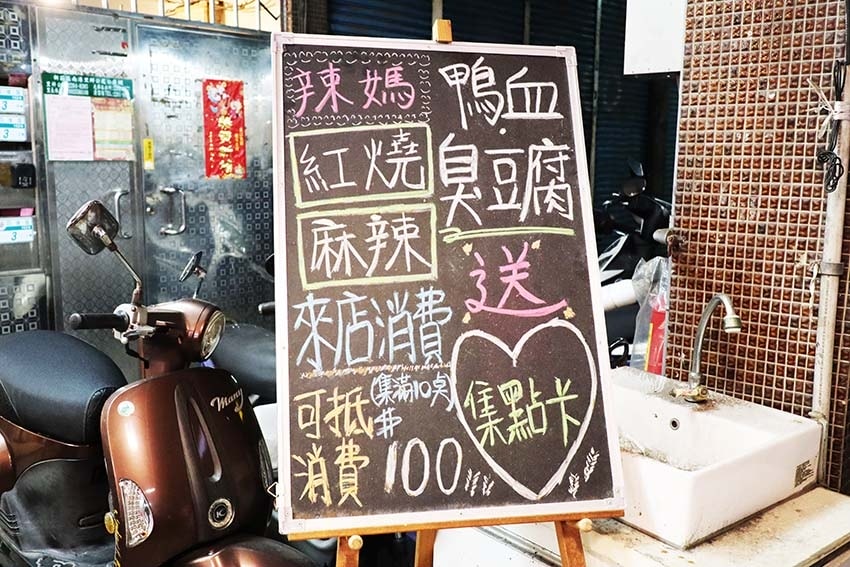 辣媽
紅燒
麻辣
鴨血
臭豆腐
送
集點卡
來店消費
(集滿10点)
可抵
消費 100
Many
3
3
3